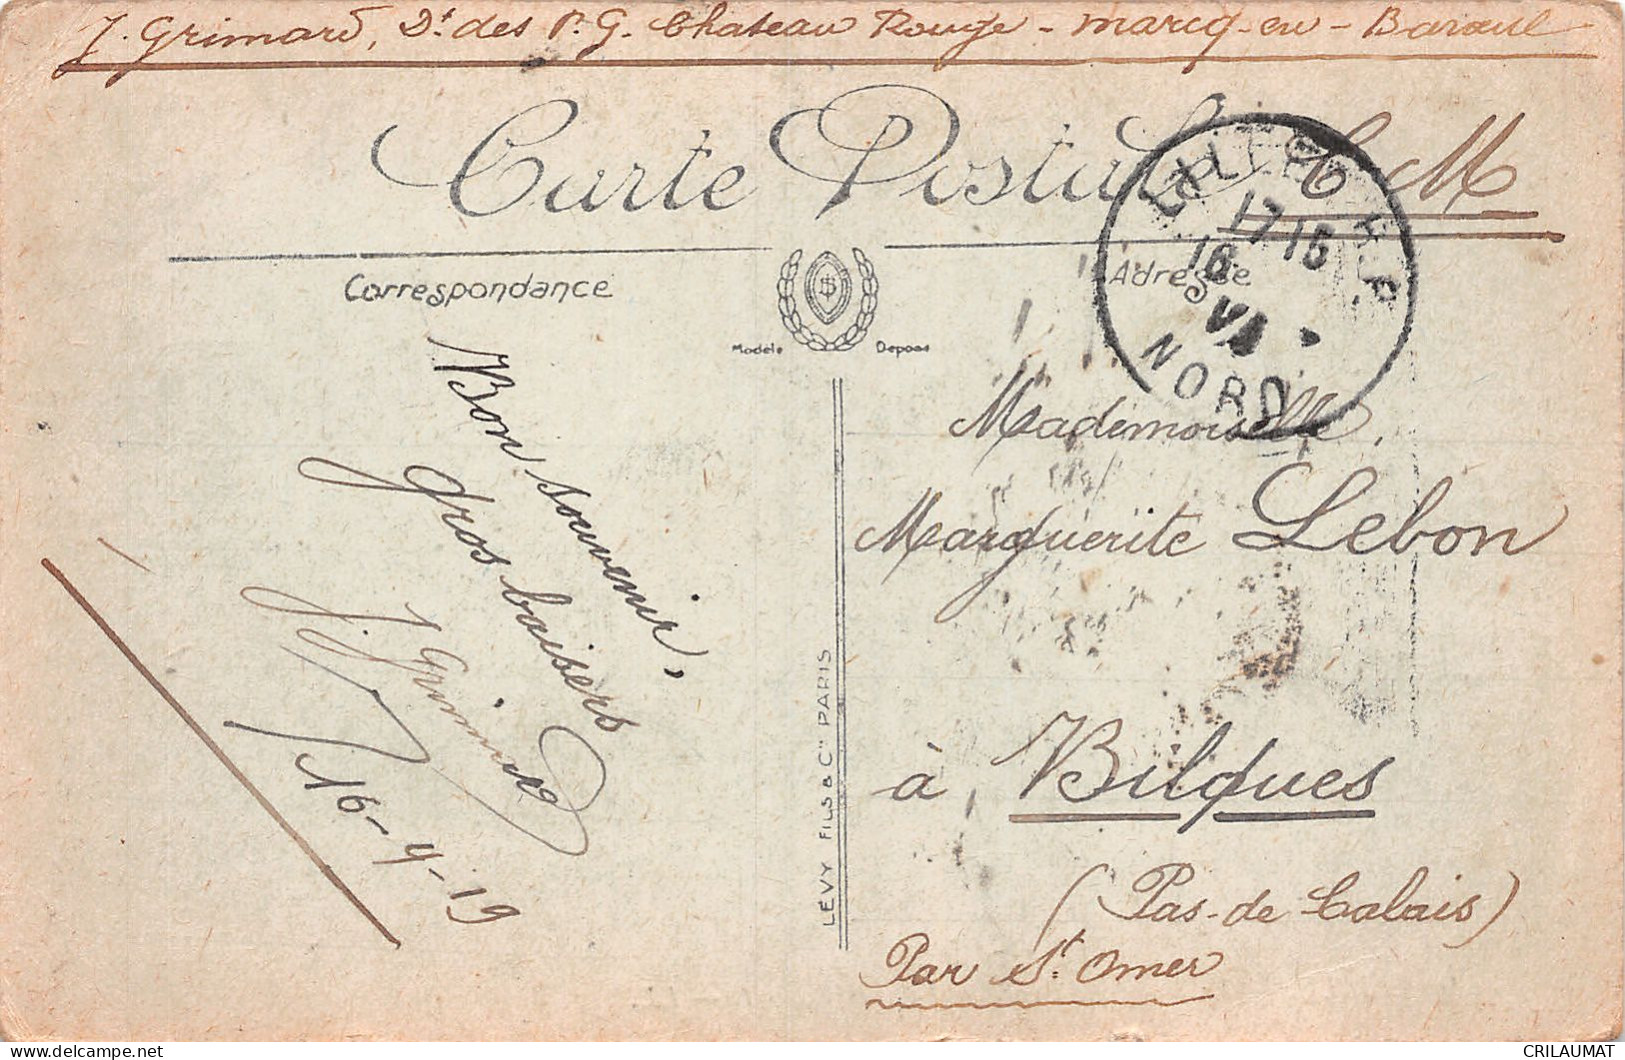 J. Grimard, Dt des P. G. Chateau Rouge - Marcq-en-Baroeul
Carte Postale
F. M.
LILLE R.P.
17-15
16
NORD
Correspondance
Adresse
Modèle Déposé
Bon souvenir,
gros baisers
J. Grimard
16-4-19
LEVY FILS & Cie PARIS
Mademoiselle,
Marguerite Lebon
à Bilques
(Pas-de Calais)
Par St. Omer
CRILAUMAT